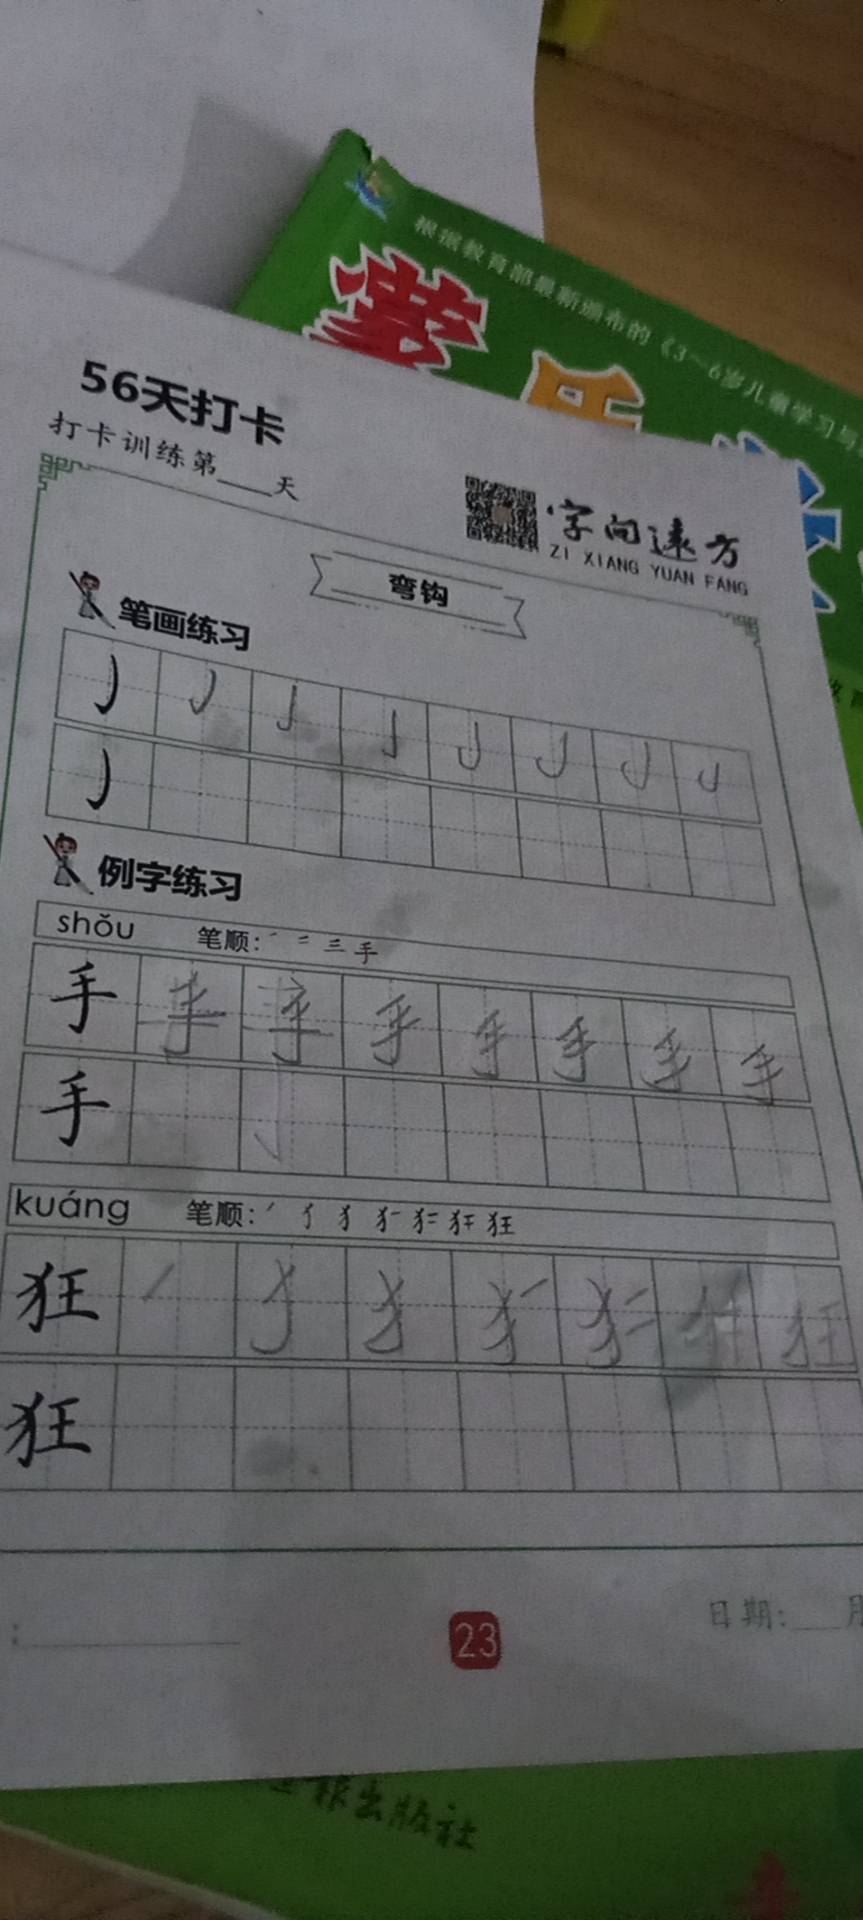 根据教育部最新颁布的《3～6岁儿童学习与
56天打卡
打卡训练第___天
字向远方
ZI XIANG YUAN FANG
弯钩
笔画练习
例字练习
shǒu 笔顺: 一 二 三 手
手 手 手 手 手 手 手 手
手
kuáng 笔顺:
狂 狂
狂
23
日期:___月
出版社